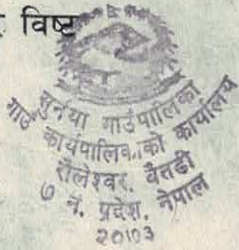 विष्ट
सुर्नया गाउँपालिका
गाउँ कार्यपालिकाको कार्यालय
शैलेश्वर, बैतडी
७ नं. प्रदेश, नेपाल
२०७३